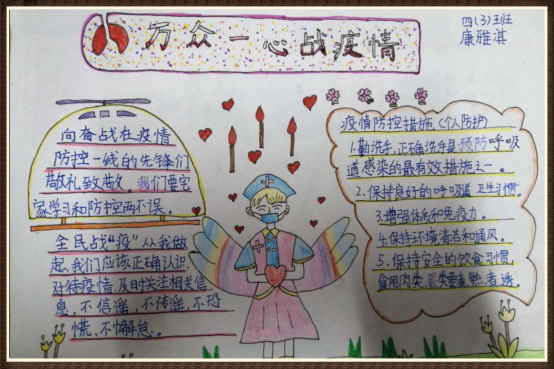 万众一心战疫情
四(3)班
康雅淇
向奋战在疫情
防控一线的先锋们
敬礼致敬。我们要在
家学习和防控两不误。
全民战“疫”从我做
起,我们应该正确认识
对待疫情,及时关注相关信
息,不信谣,不传谣,不恐
慌、不懈怠。
疫情防控措施(个人防护)
1.勤洗手,正确洗手是预防呼吸
道感染的最有效措施之一。
2.保持良好的呼吸道卫生习惯。
3.增强体质和免疫力。
4.保持环境清洁和通风。
5.保持安全的饮食习惯,
食用肉类、蛋类要煮熟、煮透。